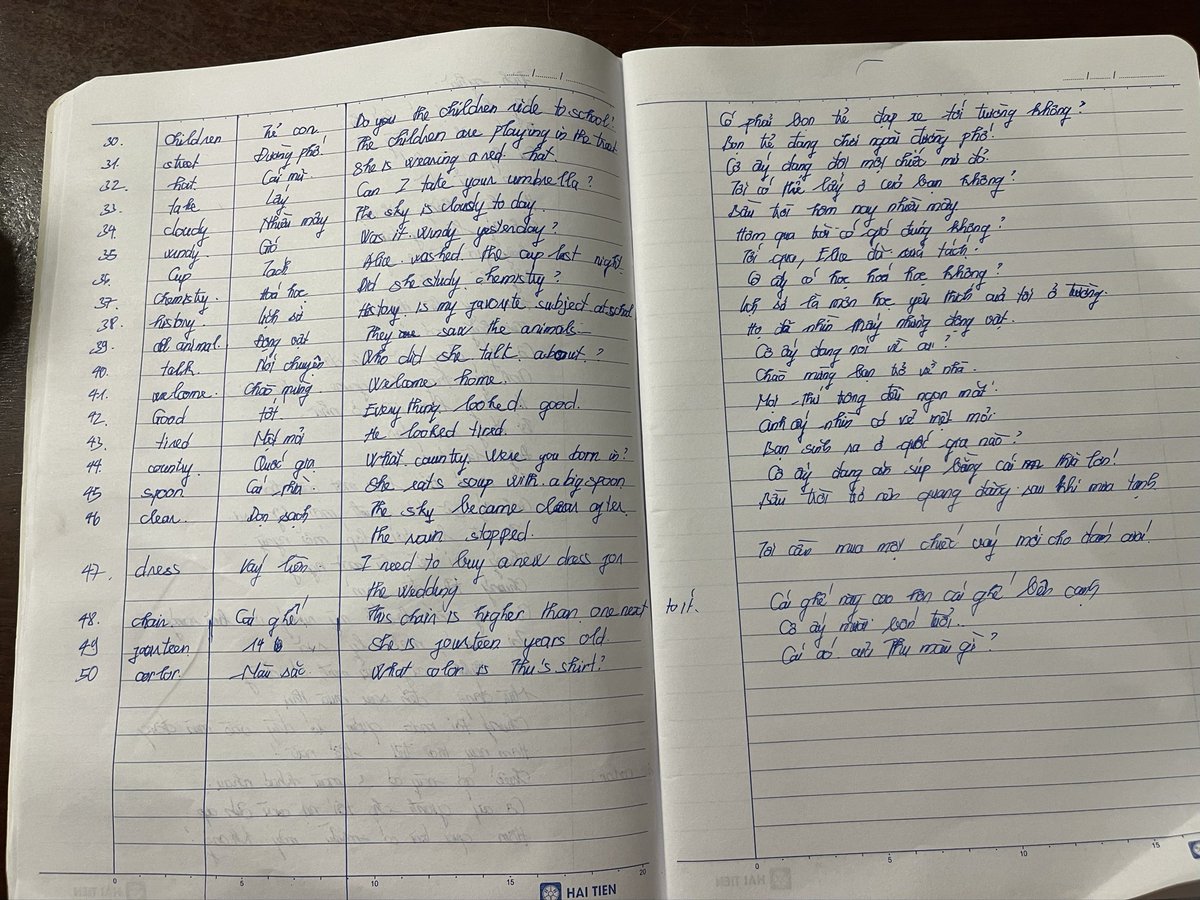 30. Children Trẻ con. Do you the children ride to school?
31. street Đường phố. The children are playing in the treet
32. hat. Cái mũ. She is wearing a red hat.
33. take Lấy Can I take your umbrella?
34. cloudy Nhiều mây The sky is clously to day.
35 windy. Gió Was it windy yesterday?
36. Cup Tách Alice washed the cup last night.
37. Chemistry. Hoá học Did she study chemistry?
38. history. lịch sử History is my favorite subject at school
39. animal. Động vật They saw the animals.
40. talk. Nói chuyện Who did she talk about?
41. welcome. Chào mừng Welcome home.
42. Good tốt. Every thing looked good.
43. tired Mệt mỏi He looked tired.
44. country. Quốc gia What country were you born in?
45 spoon Cái thìa. She eats soup with a big spoon
46 clear. Dọn sạch The sky became clear after
the rain stopped.
47. dress Váy liền I need to buy a new dress for
the wedding
48. chair Cái ghế This chair is higher than one next to it.
49 fourteen 14 She is fourteen years old.
50 corlor. Màu sắc What color is Thu's shirt?
Có phải bọn trẻ đạp xe tới trường không?
Bọn trẻ đang chơi ngoài đường phố.
Cô ấy đang đội một chiếc mũ đỏ.
Tôi có thể lấy ô của bạn không?
Bầu trời hôm nay nhiều mây
Hôm qua trời có gió đúng không?
Tối qua, đã rửa tách.
Cô ấy có học hoá học không?
lịch sử là môn học yêu thích của tôi ở trường.
Họ đã nhìn thấy những động vật.
Cô ấy đang nói về ai?
Chào mừng bạn trở về nhà.
Mọi thứ trông đều ngon mắt.
Anh ấy nhìn có vẻ mệt mỏi.
Bạn sinh ra ở quốc gia nào?
Cô ấy đang ăn súp bằng cái thìa to!
Bầu trời trở nên quang đãng sau khi mưa tạnh.
Tôi cần mua một chiếc váy mới cho đám cưới.
Cái ghế này cao hơn cái ghế bên cạnh
Cô ấy mười bốn tuổi.
Cái áo của Thu màu gì?
0 5 10 15 20
HẢI TIẾN
0 5 10 15